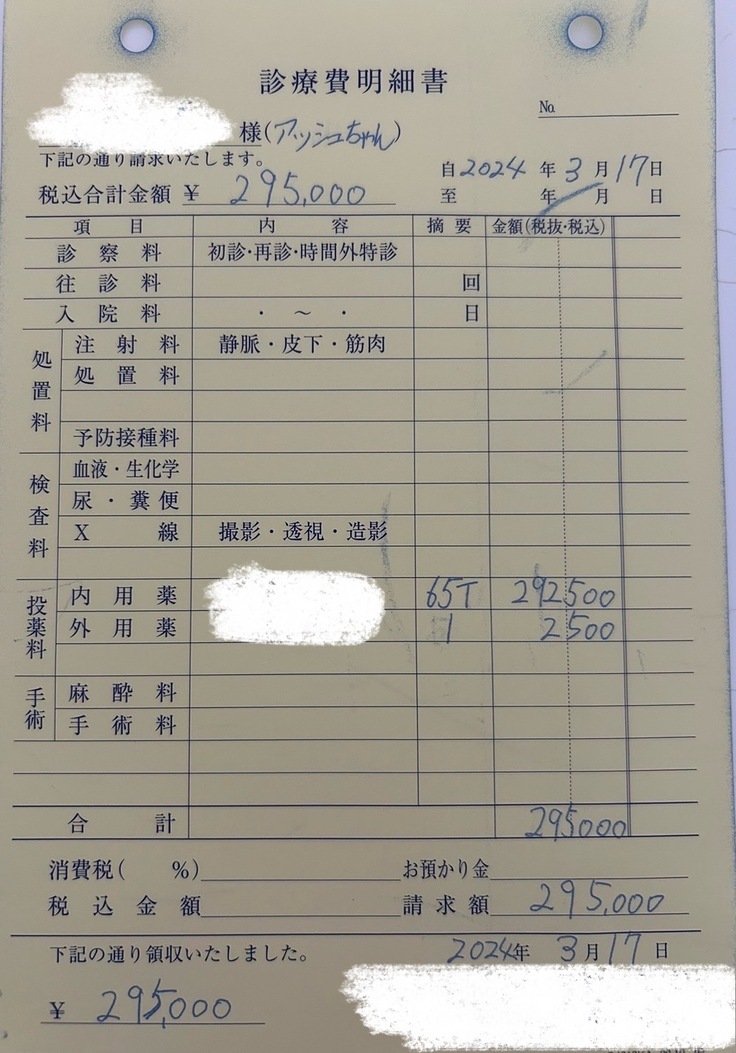 診療費明細書
No.
様(アッシュちゃん)
下記の通り請求いたします。
自2024年3月17日
税込合計金額 ¥ 295,000
至 年 月 日
項目 内容 摘要 金額(税抜・税込)
診察料 初診・再診・時間外特診
往診料 回
入院料 ・ ~ ・ 日
処置料
注射料 静脈・皮下・筋肉
処置料
予防接種料
検査料
血液・生化学
尿・糞便
X線 撮影・透視・造影
投薬料
内用薬 65T 292500
外用薬 1 2500
手術
麻酔料
手術料
合計 295000
消費税( %) お預かり金
税込金額 請求額 295,000
下記の通り領収いたしました。 2024年3月17日
¥ 295,000